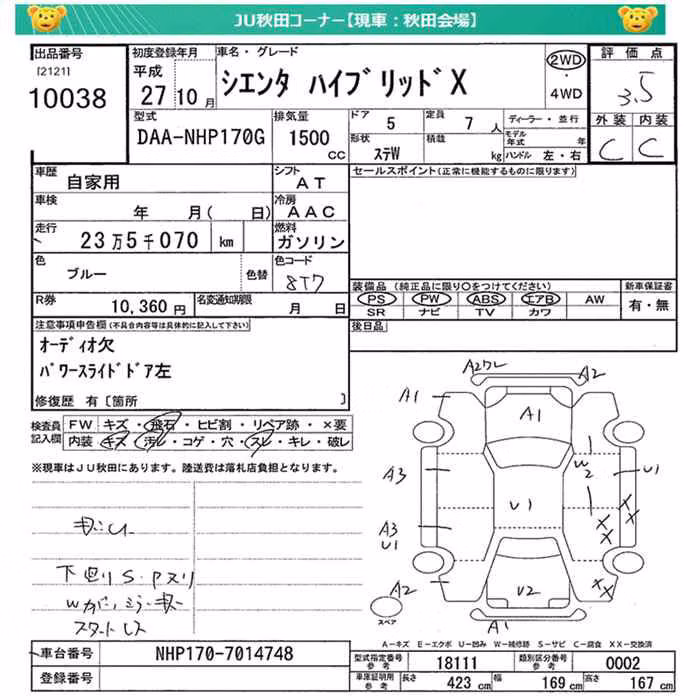 JU秋田コーナー【現車：秋田会場】
出品番号
[2121]
10038
初度登録年月
平成
27年10月
車名・グレード
シエンタ ハイブリッドX
2WD
・
4WD
評価点
3.5
外装 内装
C C
型式
DAA-NHP170G
排気量
1500
CC
ドア
5
定員
7人
形状
ステW
積載
kg
ディーラー・並行
モデル年式 年
ハンドル 左・右
車歴
自家用
シフト
AT
車検
年 月( 日)
冷房
AAC
走行
23万5千070 km
燃料
ガソリン
色
ブルー
色替
色コード
8T7
R券
10,360円
名変通知期限
月 日
セールスポイント(正常に機能するものに限ります)
装備品 (純正品に限り○をつけてください)
PS PW ABS エアB AW
SR ナビ TV カワ
新車保証書
有・無
後日品
注意事項申告欄(不具合内容等は具体的に記入して下さい)
オーディオ欠
パワースライドドア左
修復歴 有〔箇所 〕
検査員記入欄
FW キズ・飛石・ヒビ割・リペア跡・×要
内装 キズ・汚レ・コゲ・穴・スレ・キレ・破レ
※現車はJU秋田にあります。陸送費は落札店負担となります。
下廻りS・Pヌリ
スタートレス
A2ワレ
A2
A1
A1
A3
W2
U1
U1
A3
U1
XX
XX
A2
XX
U2
A1
スペア
A－キズ E－エクボ U－凹み W－補修跡 S－サビ C－腐食 XX－交換済
車台番号
NHP170-7014748
登録番号
型式指定番号
18111
類別区分番号
0002
車庫証明用参考
長さ 423 cm
幅 169 cm
高さ 167 cm